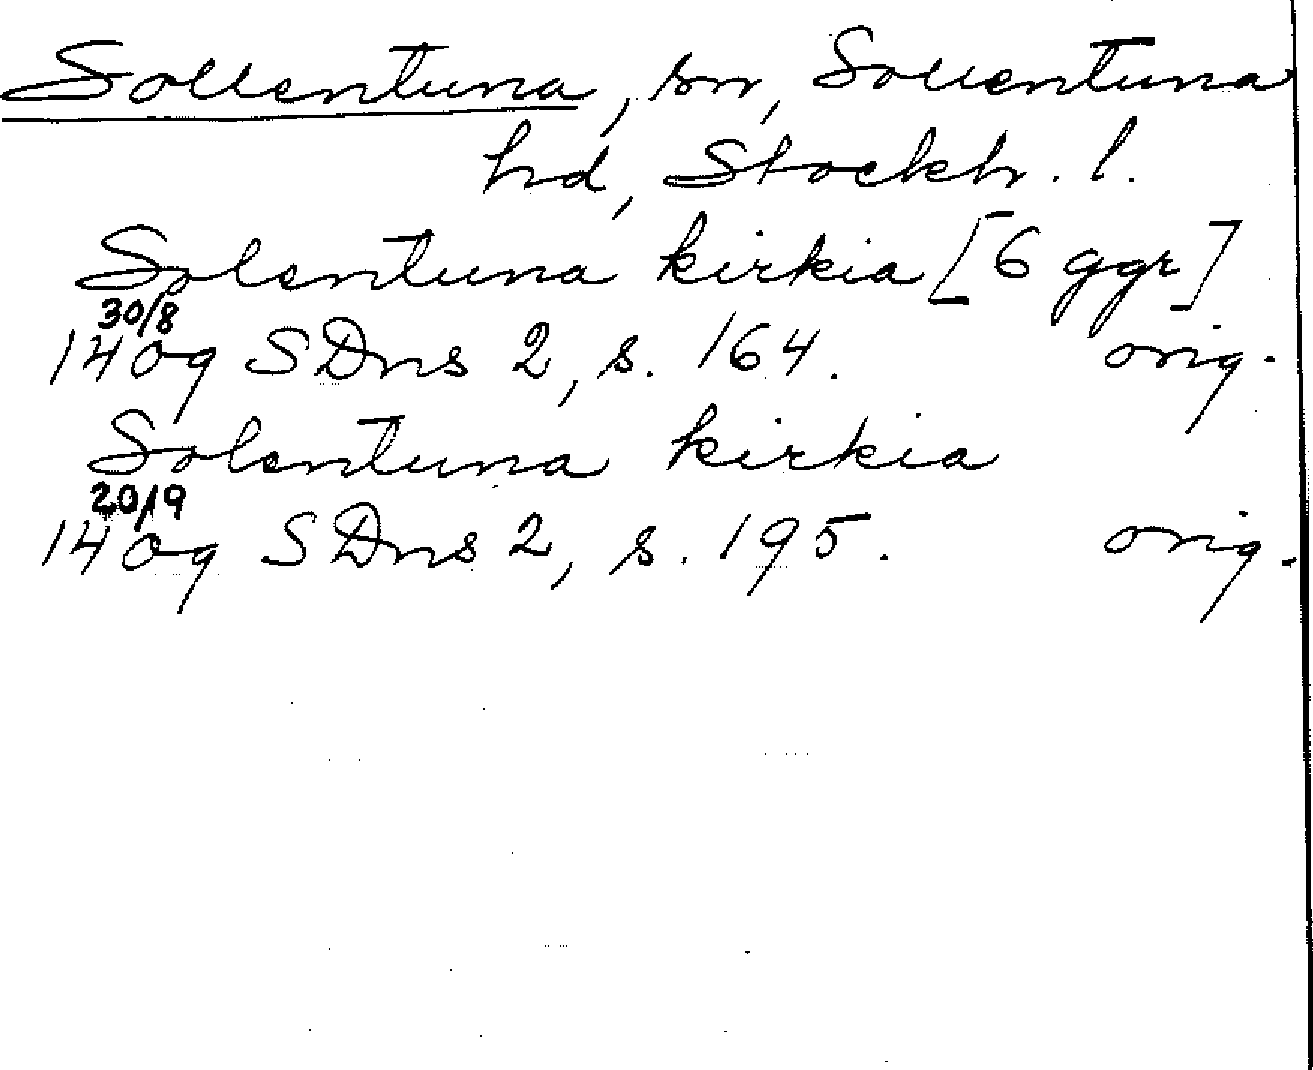 Sollentuna, sn, Sollentuna
hd, Stockh. l.
Solentuna kirkia [6 ggr]
30/8
1409 SDns 2, s. 164. orig.
Solentuna kirkia
20/9
1409 SDns 2, s. 195. orig.